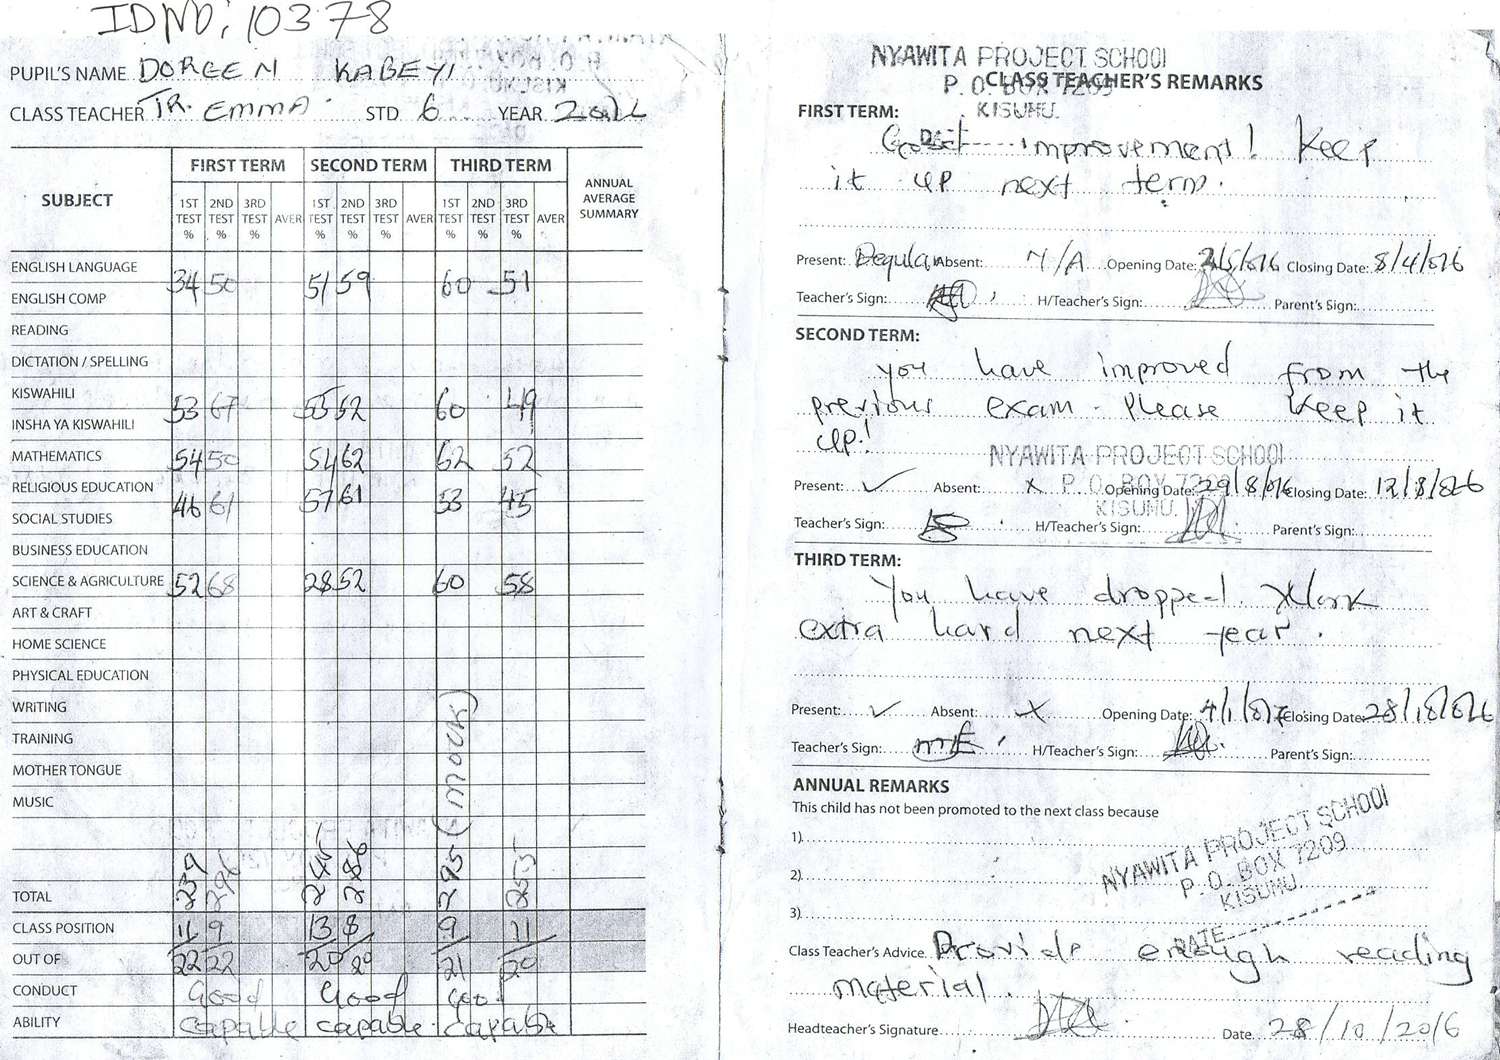 ID NO; 10378
PUPIL'S NAME DOREEN KABEYI
CLASS TEACHER TR. EMMA. STD 6 YEAR
SUBJECT FIRST TERM SECOND TERM THIRD TERM ANNUAL AVERAGE SUMMARY
1ST TEST % 2ND TEST % 3RD TEST % AVER 1ST TEST % 2ND TEST % 3RD TEST % AVER 1ST TEST % 2ND TEST % 3RD TEST % AVER
ENGLISH LANGUAGE
34 50 51 59 60 51
ENGLISH COMP
READING
DICTATION / SPELLING
KISWAHILI
53 67 55 52 60 49
INSHA YA KISWAHILI
MATHEMATICS 54 50 54 62 62 52
RELIGIOUS EDUCATION
46 61 57 61 53 45
SOCIAL STUDIES
BUSINESS EDUCATION
SCIENCE & AGRICULTURE 52 68 28 52 60 58
ART & CRAFT
HOME SCIENCE
PHYSICAL EDUCATION
WRITING
TRAINING
MOTHER TONGUE
MUSIC
TOTAL 239 296 245 286 295 (MOCK) 255
CLASS POSITION 11 9 13 8 9 11
OUT OF 22 22 20 20 21 20
CONDUCT Good Good Good
ABILITY capable capable. capable
NYAWITA PROJECT SCHOOL
P. O. BOX 7209
KISUMU.
CLASS TEACHER'S REMARKS
FIRST TERM:
Good improvement! Keep
it up next term.
Present: Regular Absent: N/A Opening Date: Closing Date: 8/4/016
Teacher's Sign: H/Teacher's Sign: Parent's Sign:
SECOND TERM:
You have improved from the
previous exam. Please keep it
up!
NYAWITA PROJECT SCHOOL
P. O. BOX 7209
KISUMU.
Present: ✓ Absent: x Opening Date: 29/8/016 Closing Date: 12/8/016
Teacher's Sign: H/Teacher's Sign: Parent's Sign:
THIRD TERM:
You have dropped. Work
extra hard next year.
Present: ✓ Absent: x Opening Date: 4/1/017 Closing Date:
Teacher's Sign: H/Teacher's Sign: Parent's Sign:
ANNUAL REMARKS
This child has not been promoted to the next class because
1)
2)
3)
NYAWITA PROJECT SCHOOL
P. O. BOX 7209
KISUMU
DATE
Class Teacher's Advice. Provide enough reading
material.
Headteacher's Signature Date 28/10/2016